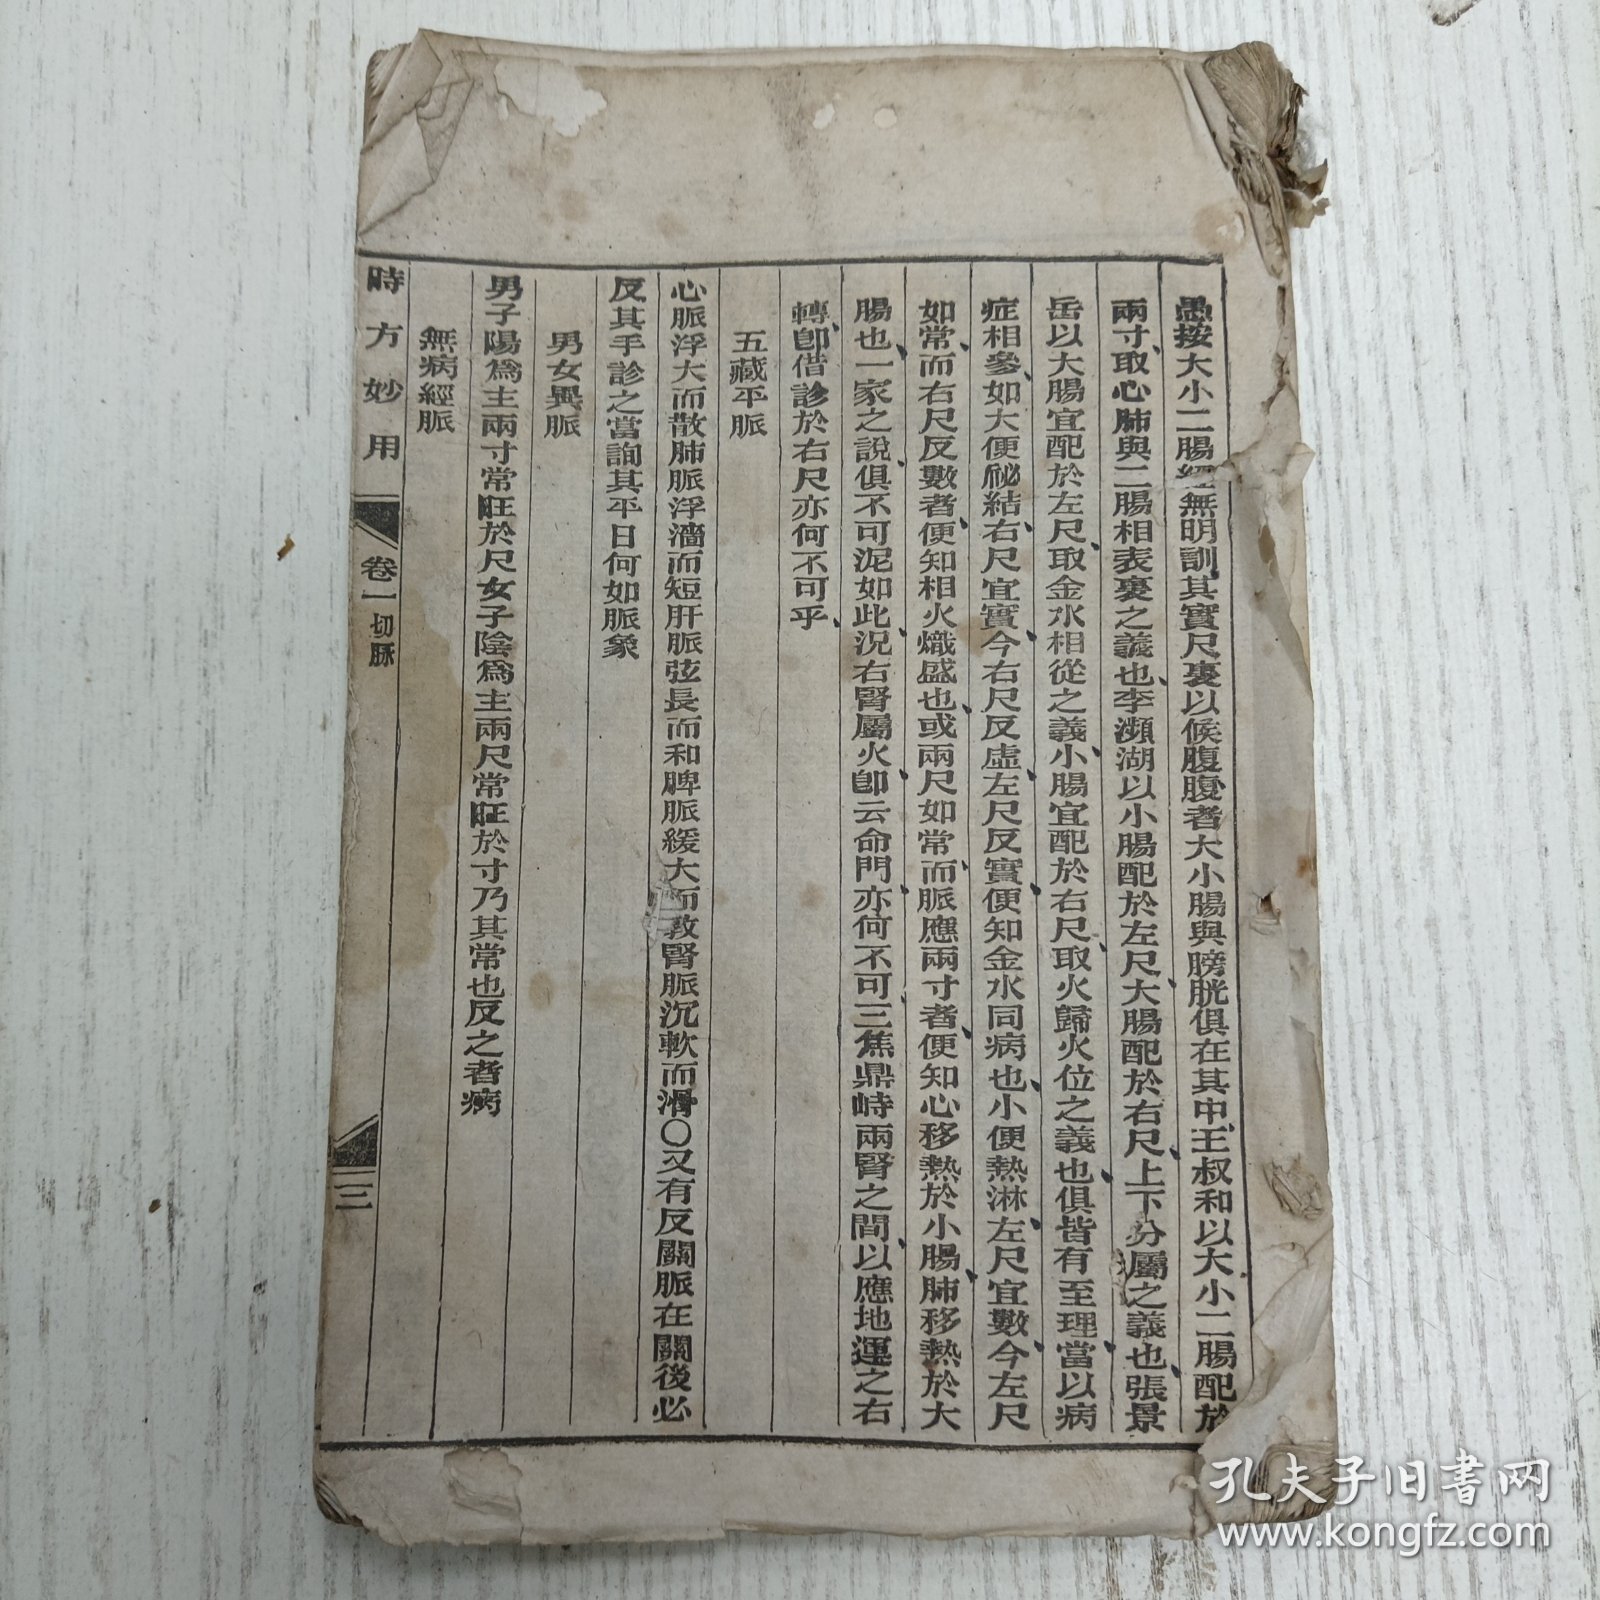 愚按大小二腸經無明訓其實尺裏以候腹腹者大小腸與膀胱俱在其中王叔和以大小二腸配於
兩寸取心肺與二腸相表裏之義也李瀕湖以小腸配於左尺大腸配於右尺上下分屬之義也張景
岳以大腸宜配於左尺取金水相從之義小腸宜配於右尺取火歸火位之義也俱皆有至理當以病
症相參如大便祕結右尺宜實今右尺反虛左尺反實便知金水同病也小便熱淋左尺宜數今左尺
如常而右尺反數者便知相火熾盛也或兩尺如常而脈應兩寸者便知心移熱於小腸肺移熱於大
腸也一家之說俱不可泥如此況右腎屬火卽云命門亦何不可三焦鼎峙兩腎之間以應地運之右
轉卽借診於右尺亦何不可乎
五藏平脈
心脈浮大而散肺脈浮濇而短肝脈弦長而和脾脈緩大而敦腎脈沉軟而滑〇又有反關脈在關後必
反其手診之當詢其平日何如脈象
男女異脈
男子陽爲主兩寸常旺於尺女子陰爲主兩尺常旺於寸乃其常也反之者病
無病經脈
時方妙用
卷一切脈
三
孔夫子旧书网
www.kongfz.com